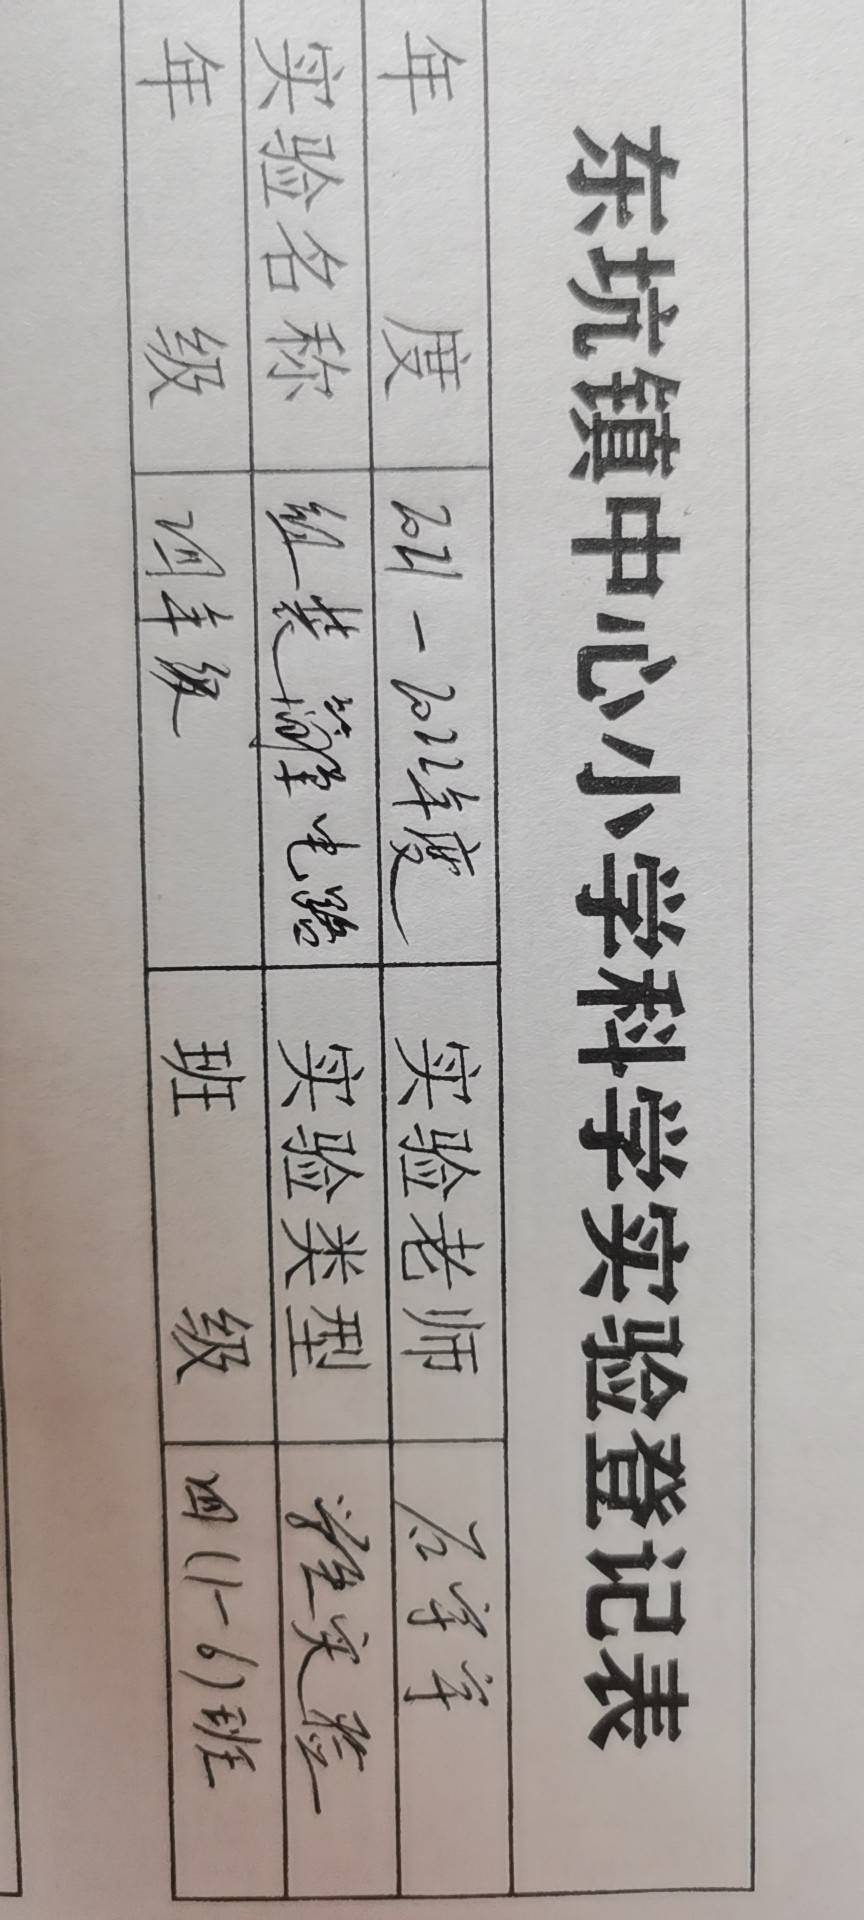 东坑镇中心小学科学实验登记表
年 度 2021-2022年度 实验老师
实验名称 组装简单电路 实验类型 学生实验
年 级 四年级 班 级 四(1-6)班